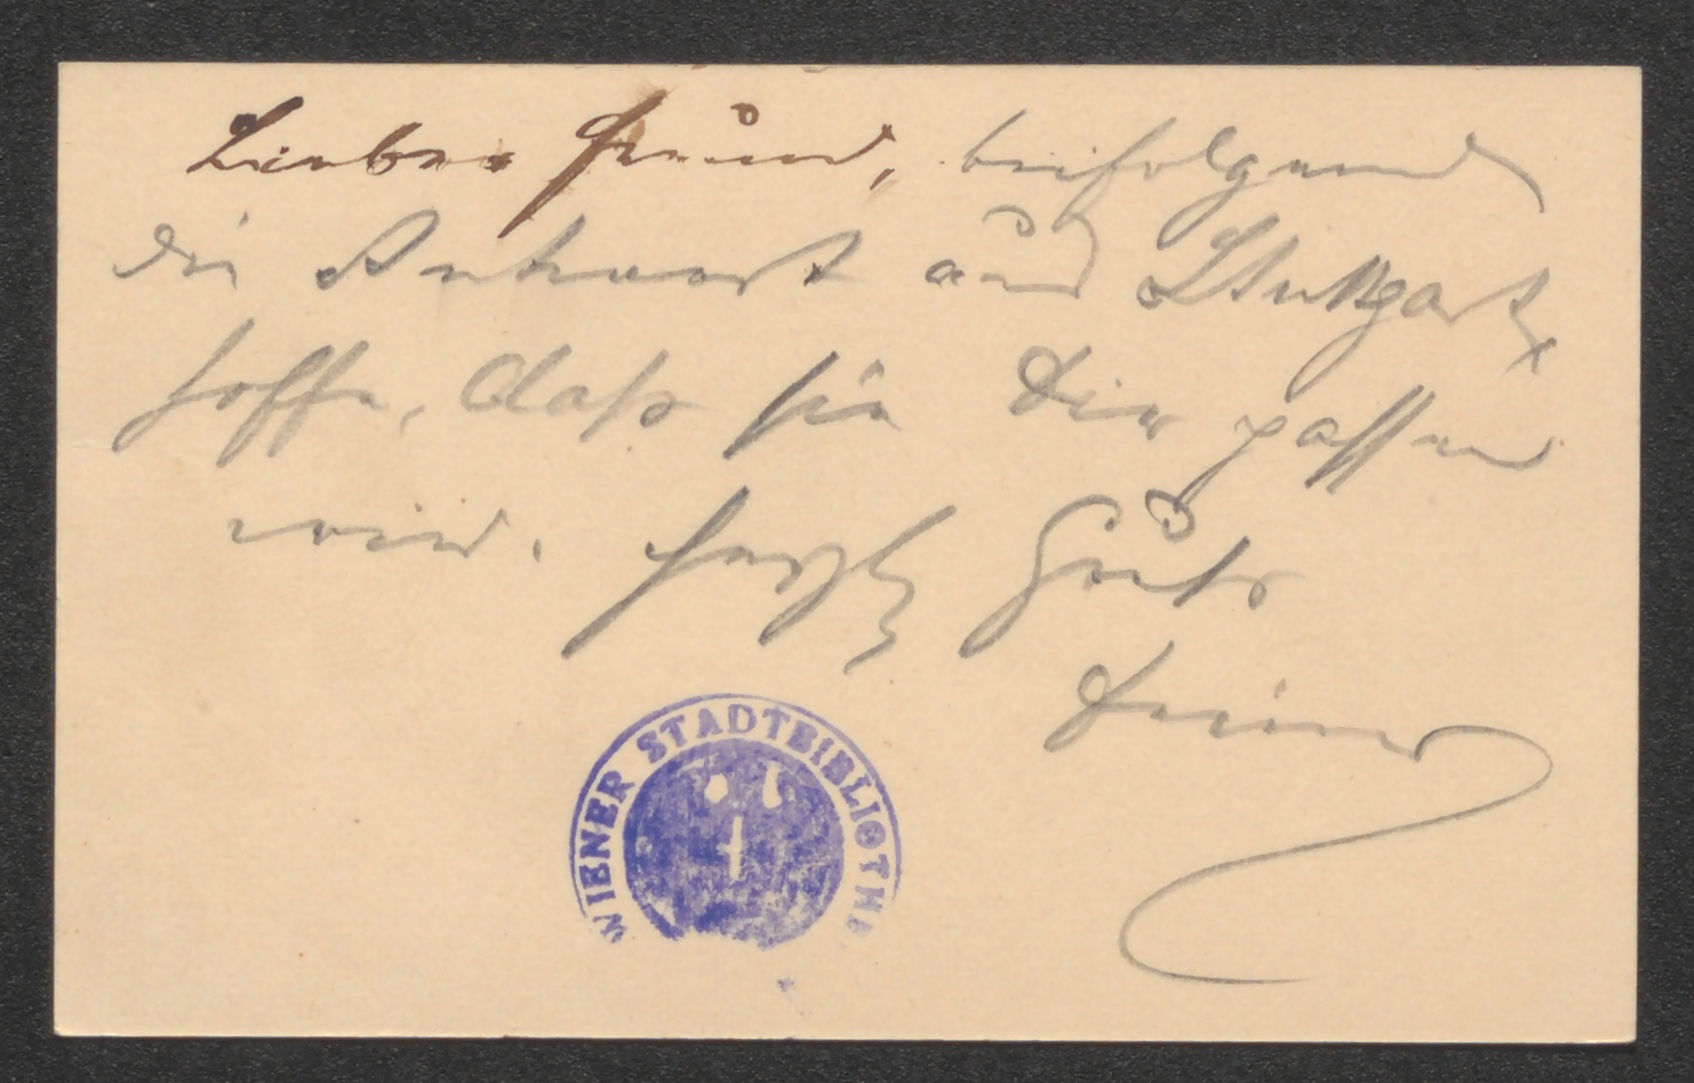 Lieber Freund, beifolgend
die Antwort aus Stuttgart,
hoffe, daß sie Dir passen
wird. Herzl Gruß
Deiner
WIENER STADTBIBLIOTHE